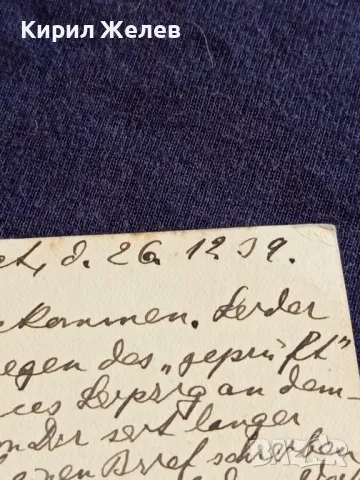 Кирил Желев
d. 26. 12. 39.
kommen. Leider
egen des „geprüft"
ces Leipzig an dem-
on Dir seit langer
Brief schreiben